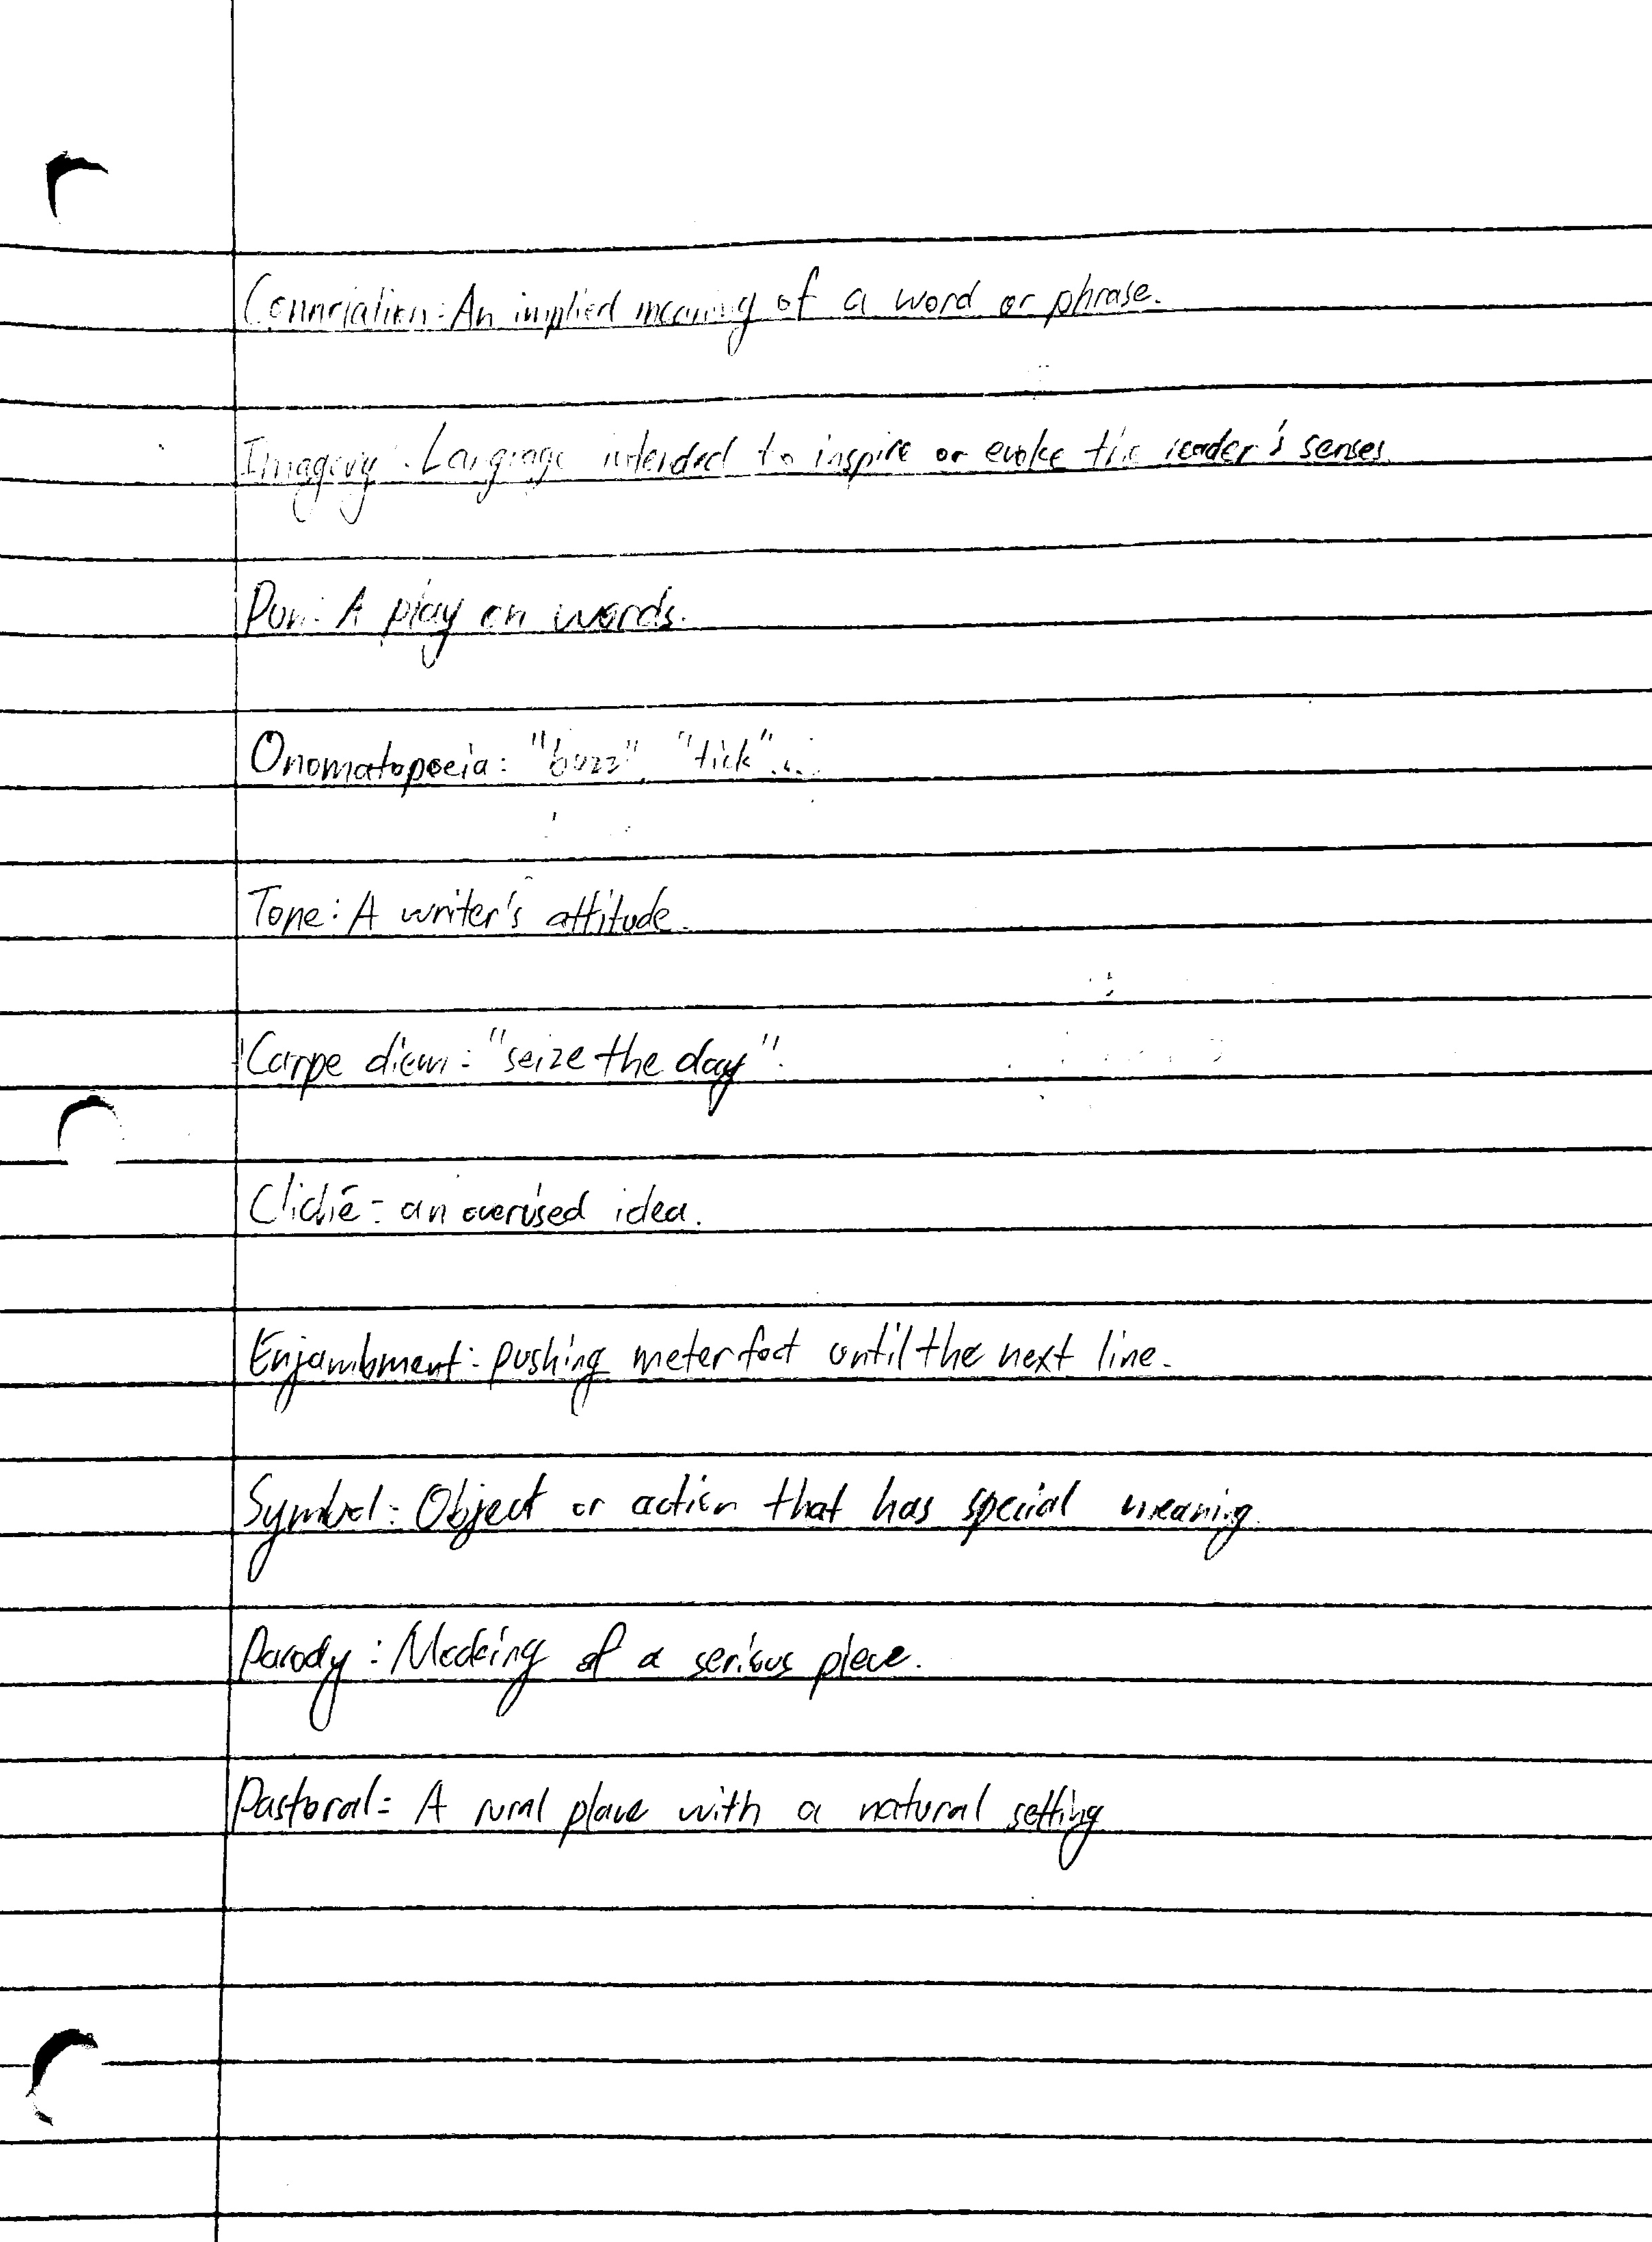 Connotation: An implied meaning of a word or phrase.
Imagery: Language intended to inspire or evoke the reader's senses.
Pun: A play on words.
Onomatopoeia: "buzz", "tick"...
Tone: A writer's attitude.
Carpe diem: "seize the day".
Cliché: an overused idea.
Enjambment: pushing meter foot until the next line.
Symbol: Object or action that has special meaning.
Parody: Mocking of a serious piece.
Pastoral: A rural place with a natural setting